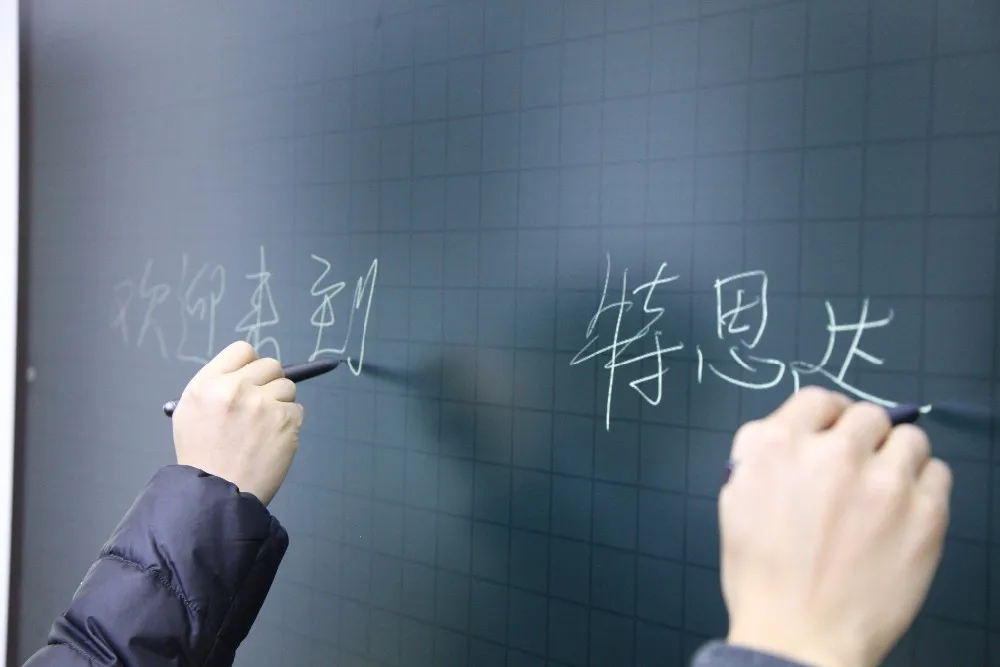 欢迎来到 特思达